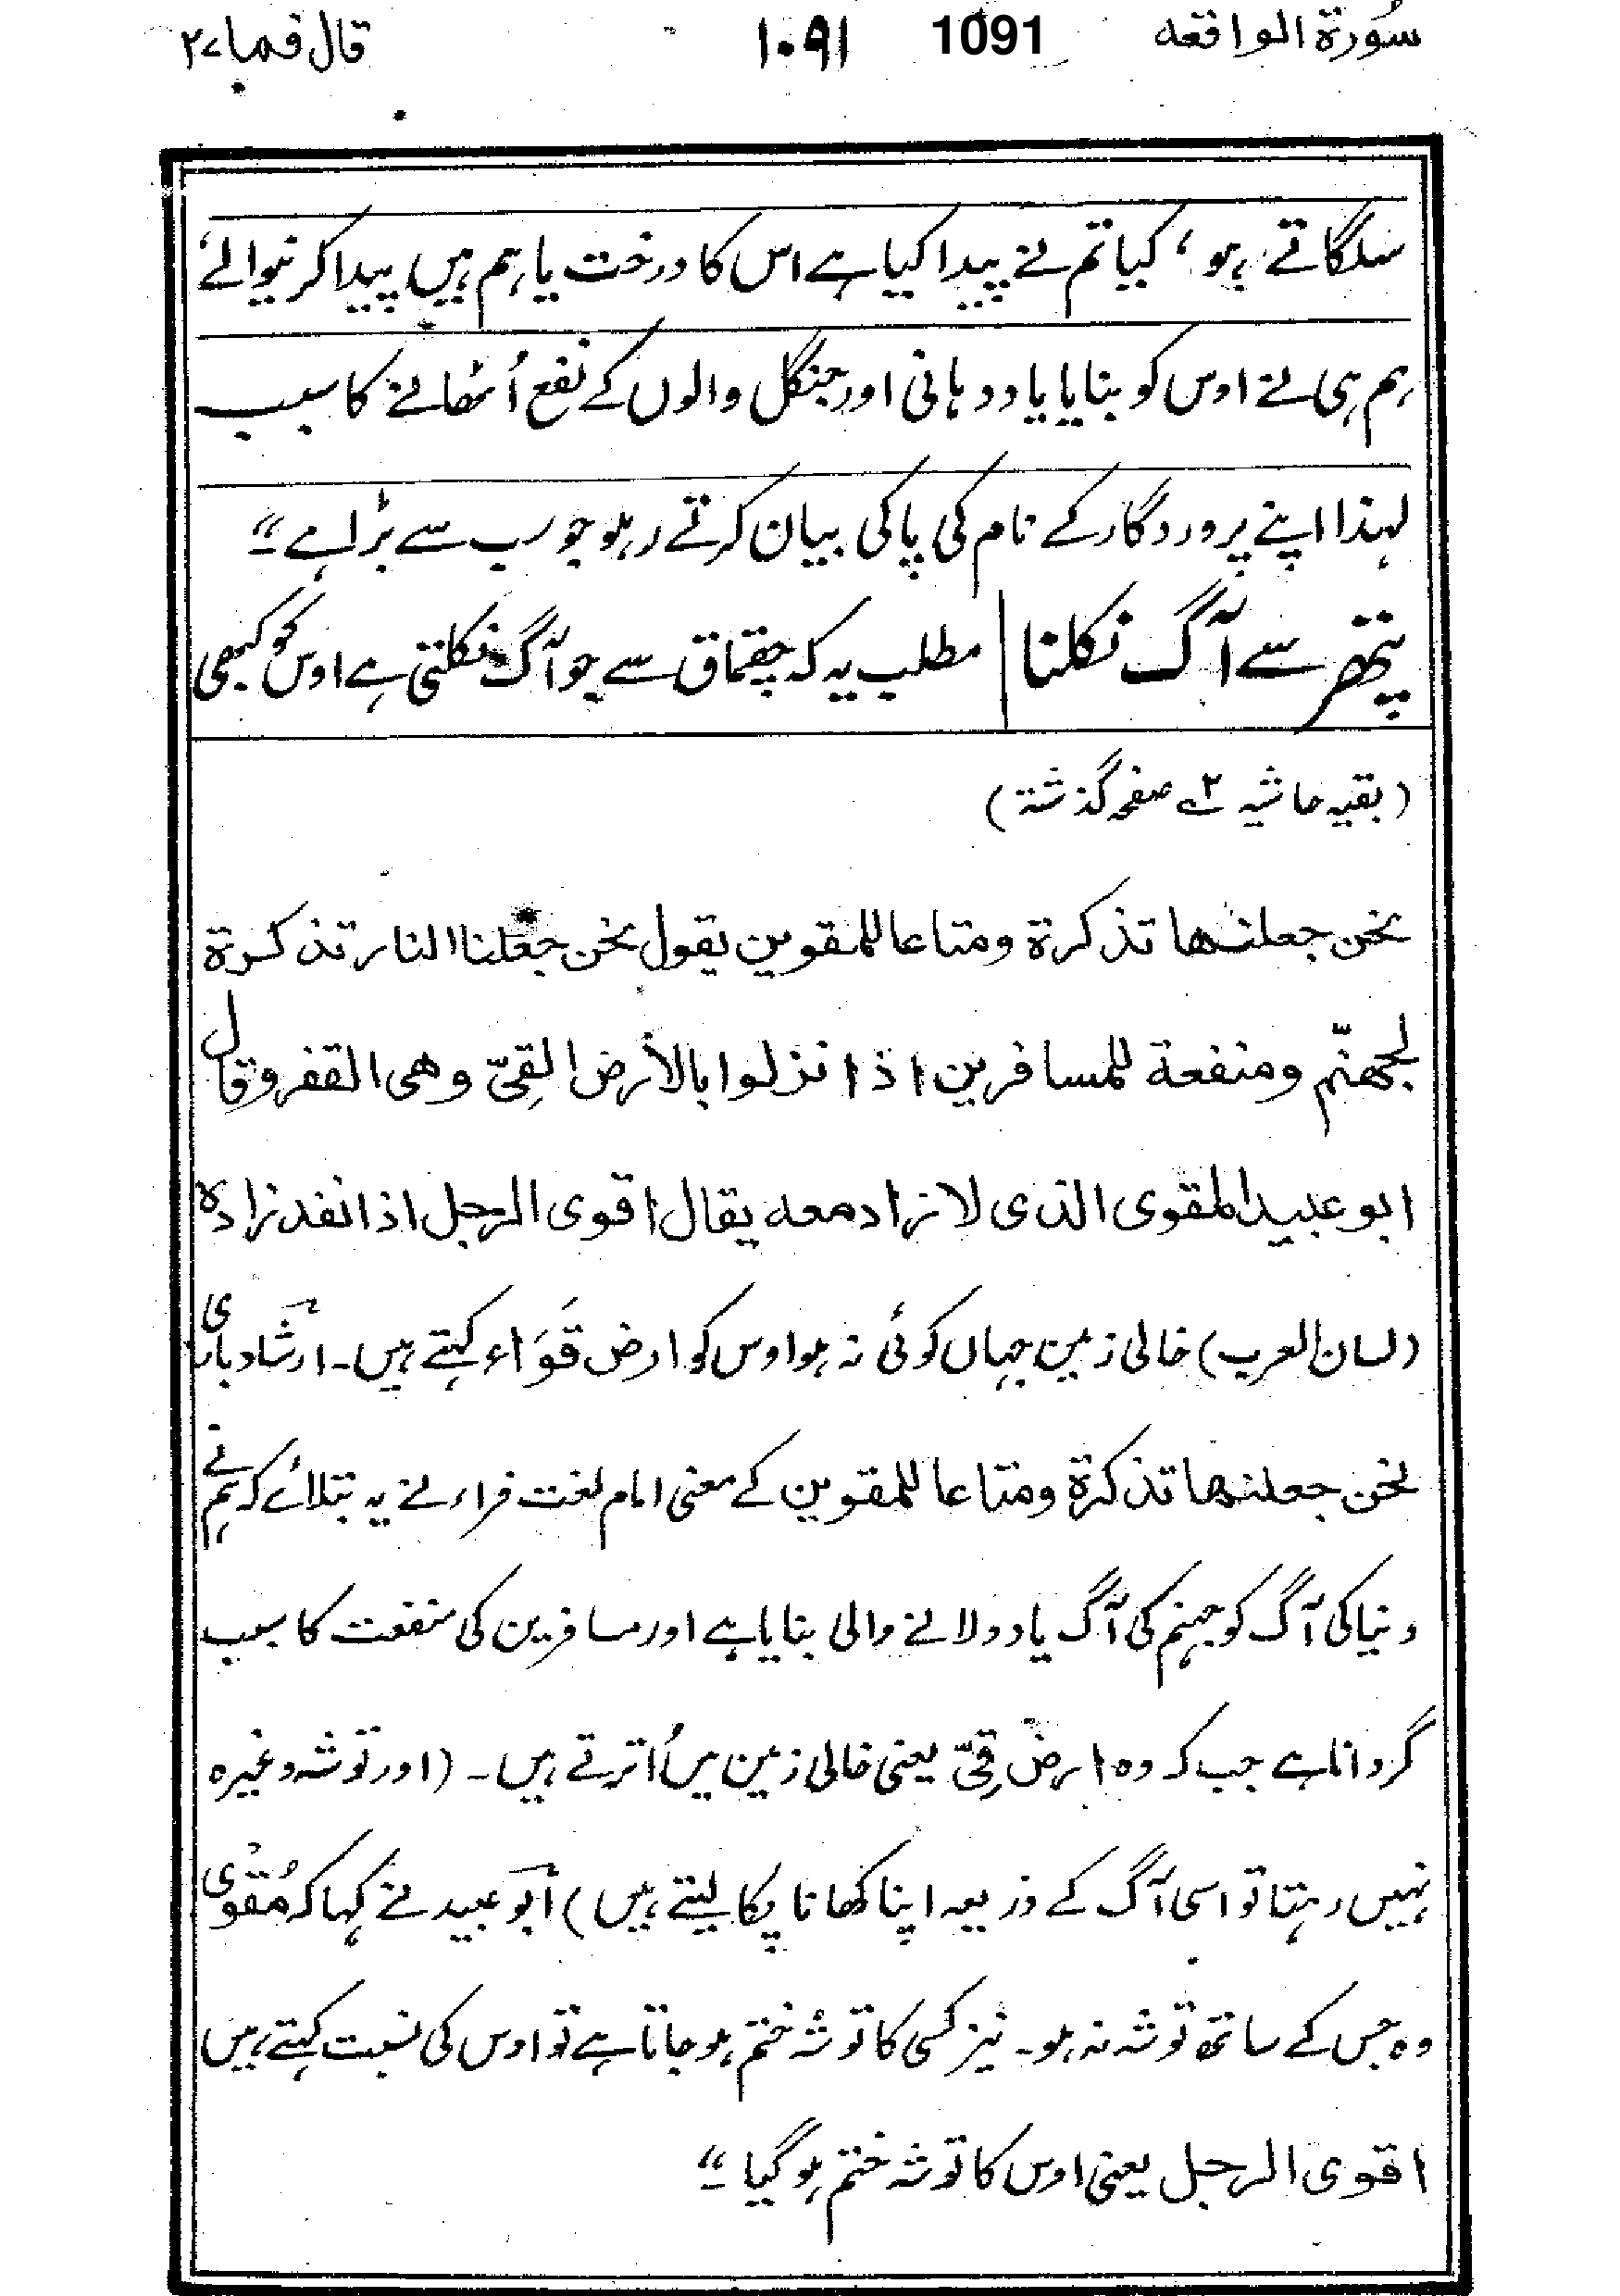 سُورۃ الواقعہ 1091 ۱۰۹۱ قال فما ۲۷
سلگاتے ہو، کیا تم نے پیدا کیا ہے اس کا درخت یا ہم ہیں پیدا کرنیوالے،
ہم ہی نے اوس کو بنایا یاد دہانی اور جنگل والوں کے نفع اُٹھانے کا سبب
لہذا اپنے پروردگار کے نام کی پاکی بیان کرتے رہو جو رب سے بڑا ہے"۔
پتھر سے آگ نکلنا | مطلب یہ کہ چقماق سے جو آگ نکلتی ہے اوس کو کبھی
(بقیہ حاشیہ ۲؎ صفحہ گذشتہ)
نحن جعلنٰھا تذکرۃ ومتاعا للمقوین یقول نحن جعلنا النار تذکرۃ
لجھنّم ومنفعۃ للمسافرین اذا نزلوا بالأرض القِیّ وھی القفر وقال
ابو عبید المقوی الذی لا زاد معہ یقال اقوی الرجل اذا نفد زادہ
(لسان العرب) خالی زمین جہاں کوئی نہ ہو اوس کو ارض قَوَاء کہتے ہیں۔ ارشاد باری
نحن جعلنٰھا تذکرۃ ومتاعا للمقوین کے معنی امام لغت فراء نے یہ بتلائے کہ ہم نے
دنیا کی آگ کو جہنم کی آگ یاد دلانے والی بنایا ہے اور مسافرین کی منفعت کا سبب
گردانا ہے جب کہ وہ ارض قِیّ یعنی خالی زمین میں اُترتے ہیں۔ (اور توشہ وغیرہ
نہیں رہتا تو اسی آگ کے ذریعہ اپنا کھانا پکا لیتے ہیں) ابو عبید نے کہا کہ مُقْوِی
وہ جس کے ساتھ توشہ نہ ہو۔ نیز کسی کا توشہ ختم ہو جاتا ہے تو اوس کی نسبت کہتے ہیں
اقوی الرجل یعنی اوس کا توشہ ختم ہو گیا"۔